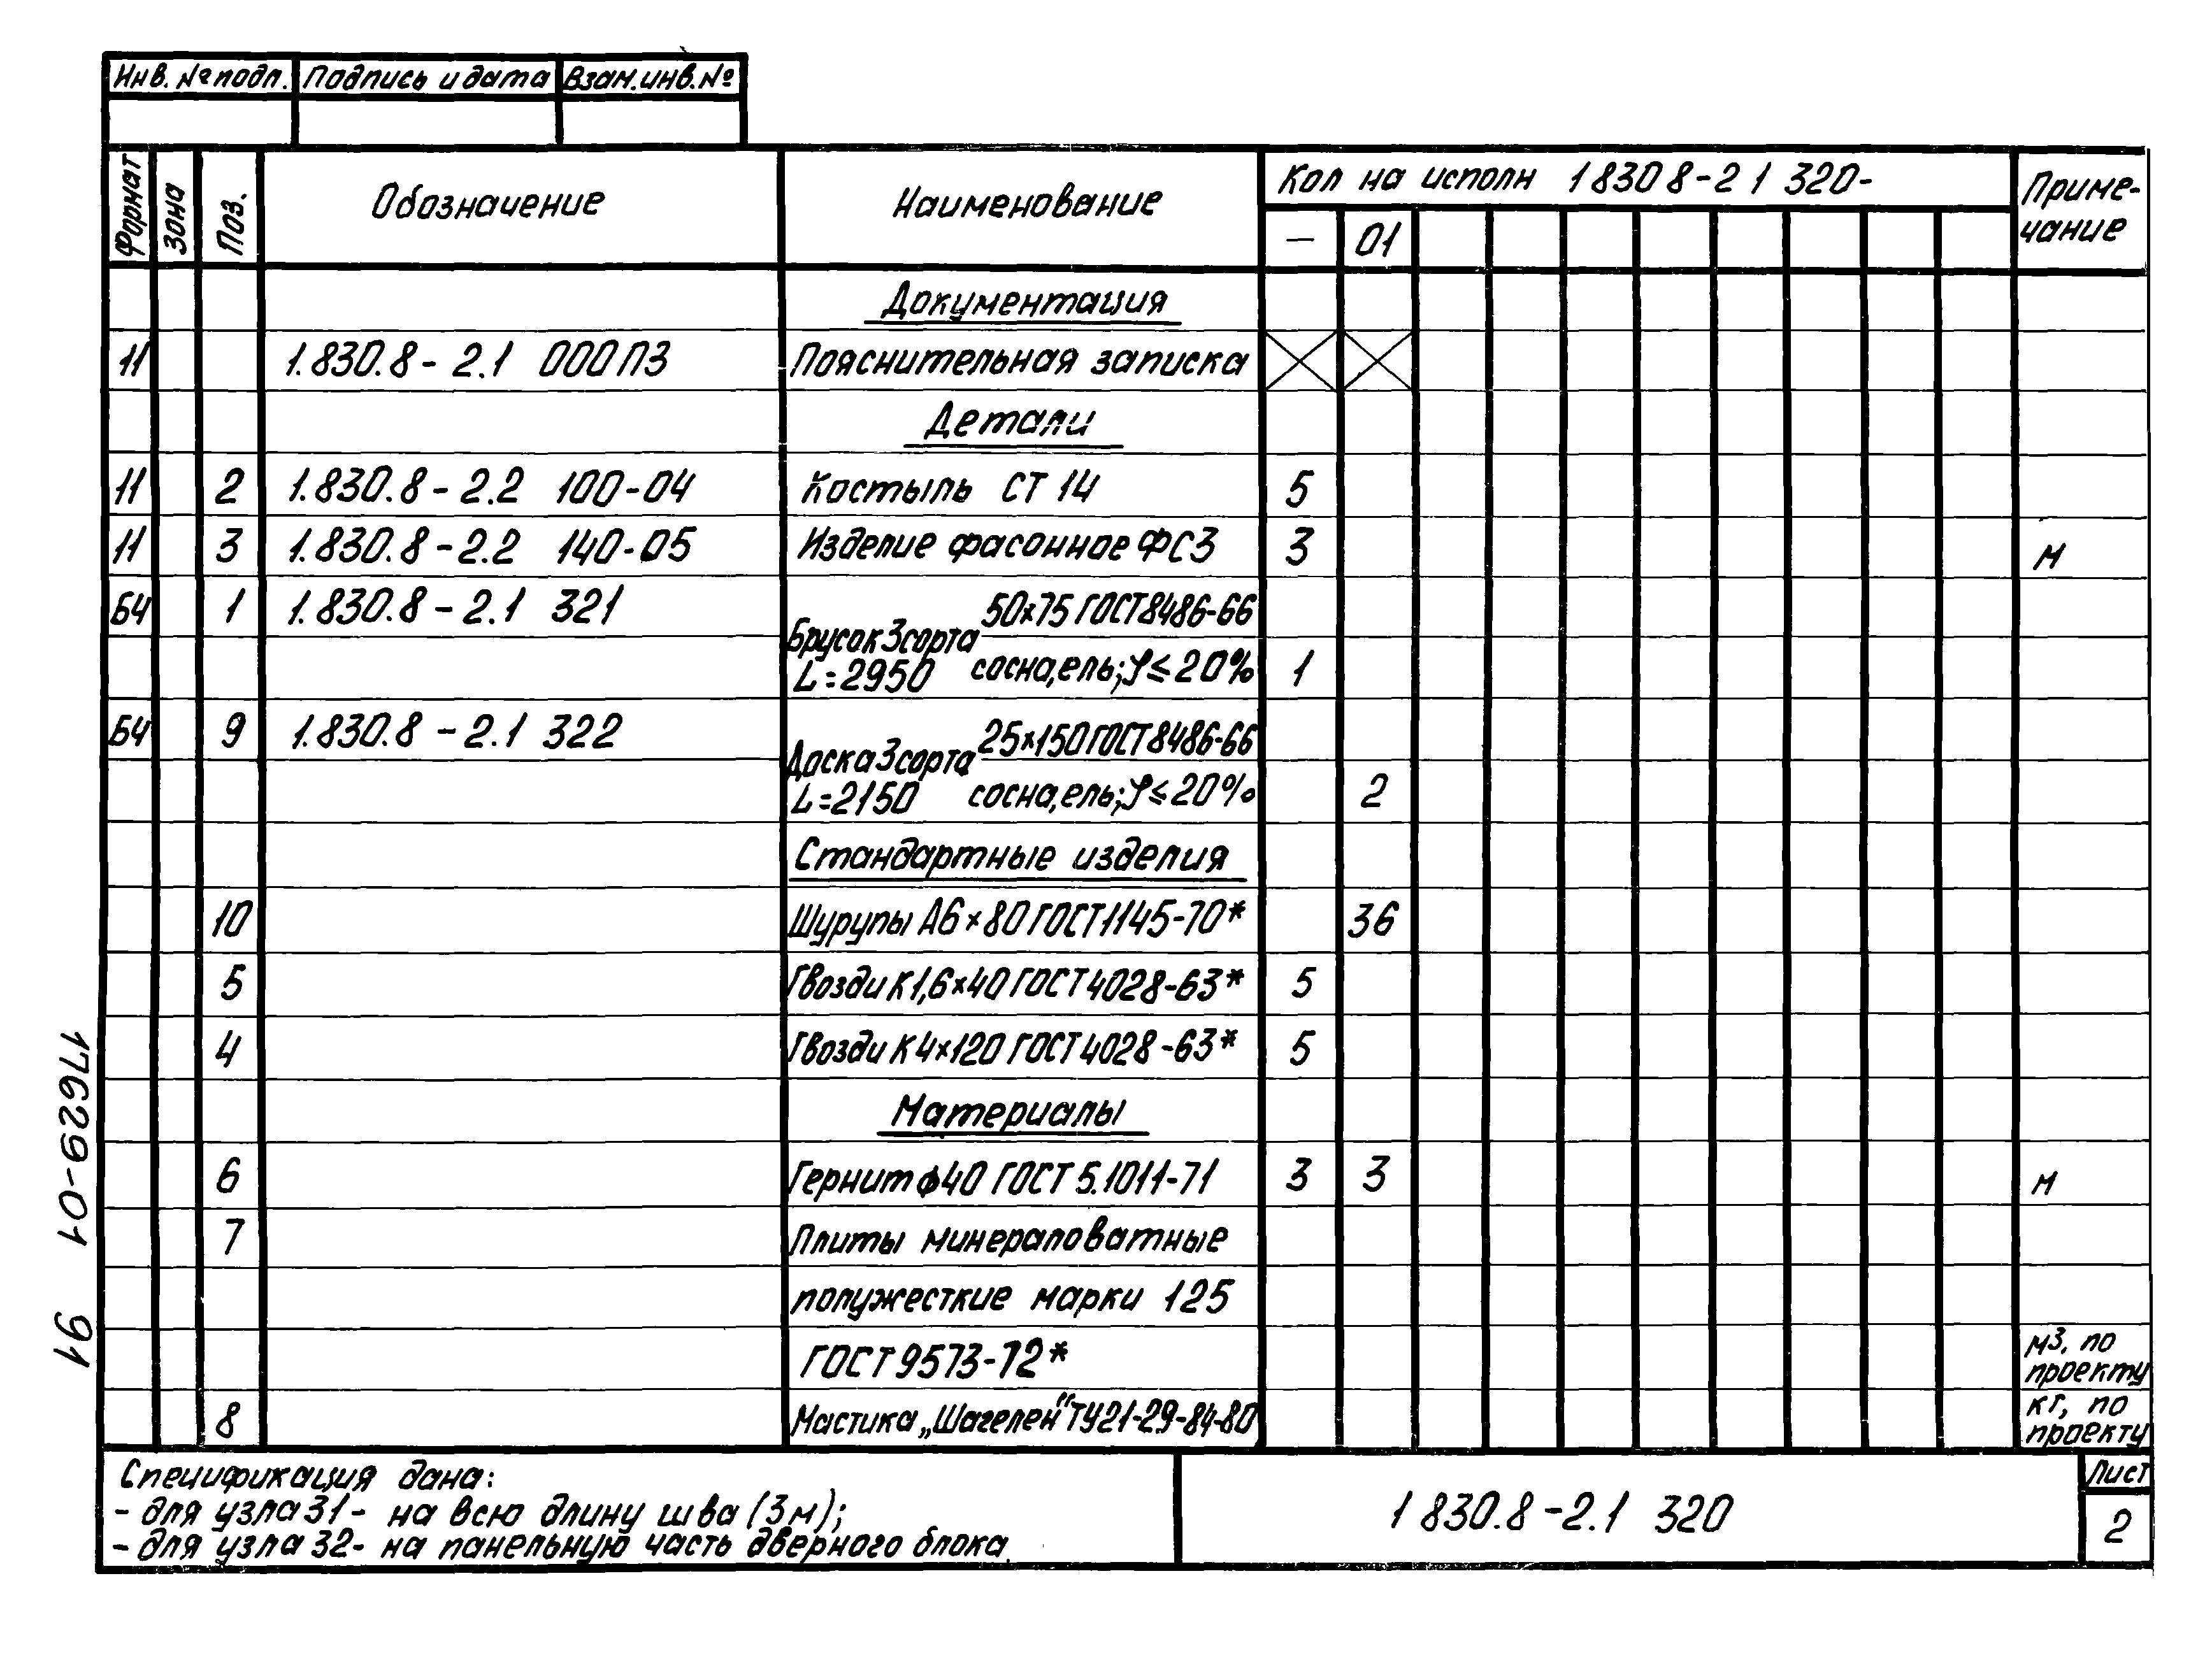 Инв. № подл. Подпись и дата Взам. инв. №
Формат Зона Поз. Обозначение Наименование Кол на исполн 1 830 8-2 1 320- Приме-
чание
— 01
Документация
11 1.830.8-2.1 000ПЗ Пояснительная записка
Детали
11 2 1.830.8-2.2 100-04 Костыль СТ 14 5
11 3 1.830.8-2.2 140-05 Изделие фасонное ФС3 3 м
БЧ 1 1.830.8-2.1 321 Брусок 3 сорта 50×75 ГОСТ 8486-66
L=2950 сосна, ель; φ≤20% 1
БЧ 9 1.830.8-2.1 322 Доска 3 сорта 25×150 ГОСТ 8486-66
L=2150 сосна, ель; φ≤20% 2
Стандартные изделия
10 Шурупы А6×80 ГОСТ 1145-70* 36
5 Гвозди К1,6×40 ГОСТ 4028-63* 5
4 Гвозди К4×120 ГОСТ 4028-63* 5
Материалы
6 Гернит ϕ40 ГОСТ 5.1011-71 3 3 м
7 Плиты минераловатные
полужесткие марки 125
ГОСТ 9573-72* м3, по
проекту
8 Мастика „Шагелен“ ТУ21-29-84-80 кг, по
проекту
Спецификация дана:
- для узла 31- на всю длину шва (3м);
- для узла 32- на панельную часть дверного блока
1 830.8-2.1 320
Лист
2
17629-01 91